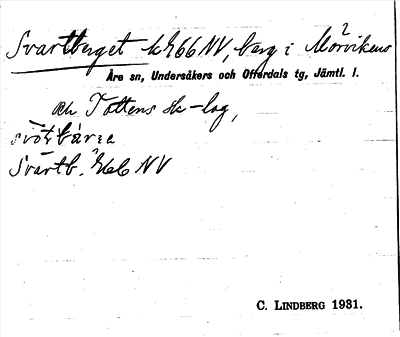 Svartberget kh66NV, berg i Mörvikens
Åre sn, Undersåkers och Offerdals tg, Jämtl. l.
och Tottens sk-lag,
Svartb. NV
C. LINDBERG 1931.